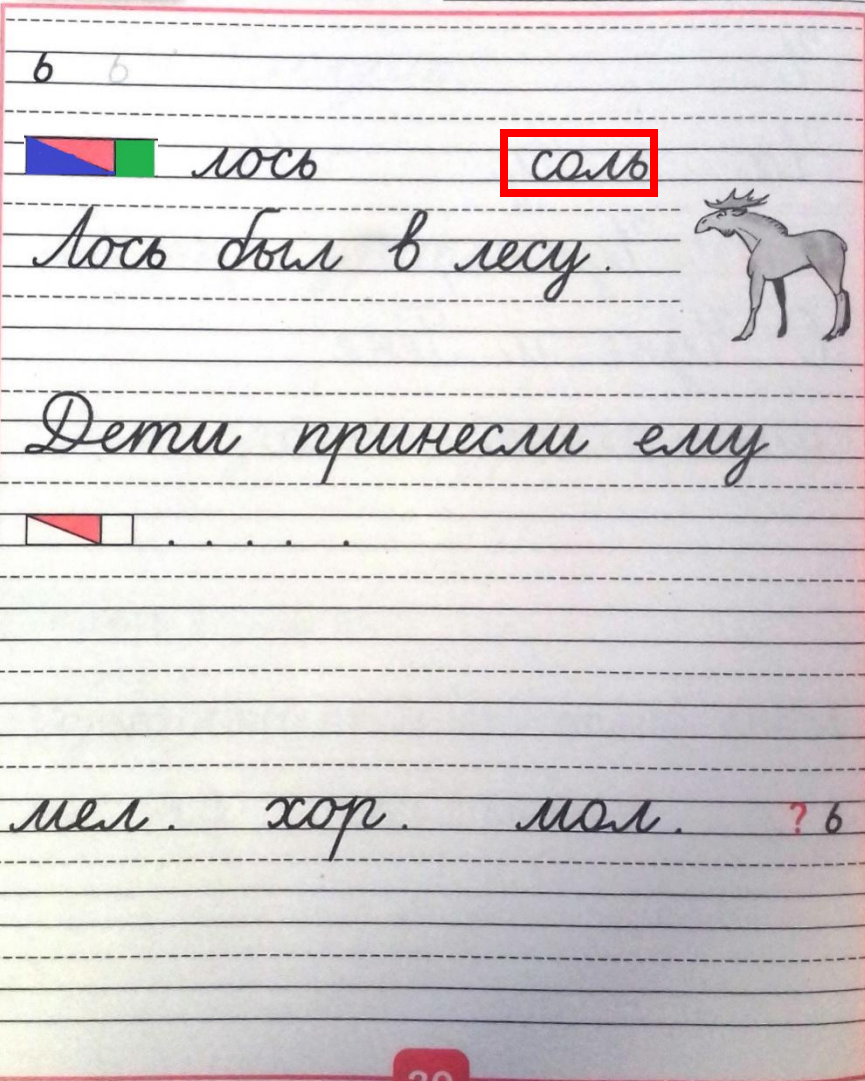 ь ь
лось соль
Лось был в лесу.
Дети принесли ему
. . . . .
мел. хор. мол. ? ь
30